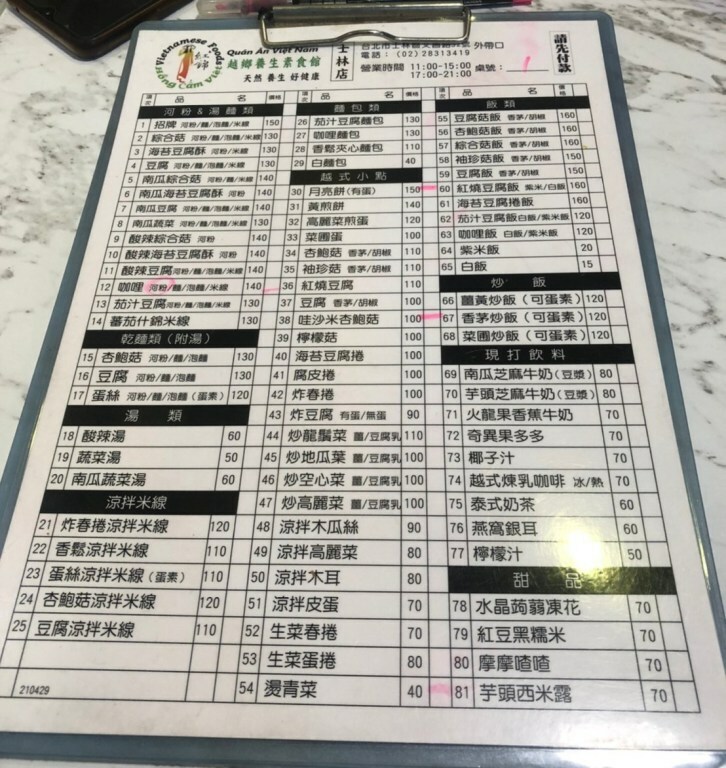 Vietnamese Foods
Sống Cảm Việt
Quán Ăn Việt Nam
越鄉養生素食館
天然 養生 好健康
士林店
電話：(02)28313419
外帶口
營業時間 11:00-15:00
17:00-21:00
桌號：
請先付款
項次 品 名 價格
河粉&湯麵類
1 招牌 河粉/麵/泡麵/米線 150
2 綜合菇 河粉/麵/泡麵/米線 130
3 海苔豆腐酥 河粉/麵/泡麵/米線 130
4 豆腐 河粉/麵/泡麵/米線 130
5 南瓜綜合菇 河粉/麵/泡麵/米線 140
6 南瓜海苔豆腐酥 河粉 140
7 南瓜豆腐 河粉/麵/泡麵/米線 140
8 南瓜蔬菜 河粉/麵/泡麵/米線 130
9 酸辣綜合菇 河粉 140
10 酸辣海苔豆腐酥 河粉 140
11 酸辣豆腐 河粉/麵/泡麵/米線 140
12 咖哩 河粉/麵/泡麵/米線 140
13 茄汁豆腐 河粉/麵/泡麵/米線 140
14 蕃茄什錦米線 130
乾麵類(附湯)
15 杏鮑菇 河粉/麵/泡麵 130
16 豆腐 河粉/麵/泡麵 130
17 蛋絲 河粉/麵/泡麵(蛋素) 120
湯 類
18 酸辣湯 60
19 蔬菜湯 50
20 南瓜蔬菜湯 60
涼拌米線
21 炸春捲涼拌米線 120
22 香鬆涼拌米線 110
23 蛋絲涼拌米線(蛋素) 110
24 杏鮑菇涼拌米線 120
25 豆腐涼拌米線 110
210429
項次 品 名 價格
麵包類
26 茄汁豆腐麵包 130
27 咖哩麵包 130
28 香鬆夾心麵包 110
29 白麵包 40
越式小點
30 月亮餅(有蛋) 150
31 黃煎餅 140
32 高麗菜煎蛋 120
33 菜圃蛋 100
34 杏鮑菇 香茅/胡椒 110
35 袖珍菇 香茅/胡椒 110
36 紅燒豆腐 110
37 豆腐 香茅/胡椒 100
38 哇沙米杏鮑菇 100
39 檸檬菇 100
40 海苔豆腐捲 100
41 腐皮捲 100
42 炸春捲 100
43 炸豆腐 有蛋/無蛋 90
44 炒龍鬚菜 薑/豆腐乳 110
45 炒地瓜葉 薑/豆腐乳 100
46 炒空心菜 薑/豆腐乳 100
47 炒高麗菜 薑/豆腐乳 100
48 涼拌木瓜絲 90
49 涼拌高麗菜 80
50 涼拌木耳 80
51 涼拌皮蛋 70
52 生菜春捲 70
53 生菜蛋捲 80
54 燙青菜 40
項次 品 名 價格
飯類
55 豆腐菇飯 香茅/胡椒 160
56 杏鮑菇飯 香茅/胡椒 160
57 綜合菇飯 香茅/胡椒 160
58 袖珍菇飯 香茅/胡椒 160
59 豆腐飯 香茅/胡椒 160
60 紅燒豆腐飯 紫米/白飯 160
61 海苔豆腐捲飯 160
62 茄汁豆腐飯 白飯/紫米飯 120
63 咖哩飯 白飯/紫米飯 120
64 紫米飯 20
65 白飯 15
炒 飯
66 薑黃炒飯(可蛋素) 120
67 香茅炒飯(可蛋素) 120
68 菜圃炒飯(可蛋素) 120
現打飲料
69 南瓜芝麻牛奶(豆漿) 80
70 芋頭芝麻牛奶(豆漿) 80
71 火龍果香蕉牛奶 70
72 奇異果多多 70
73 椰子汁 70
74 越式煉乳咖啡 冰/熱 70
75 泰式奶茶 60
76 燕窩銀耳 60
77 檸檬汁 50
甜 品
78 水晶蒟蒻凍花 70
79 紅豆黑糯米 70
80 摩摩喳喳 70
81 芋頭西米露 70